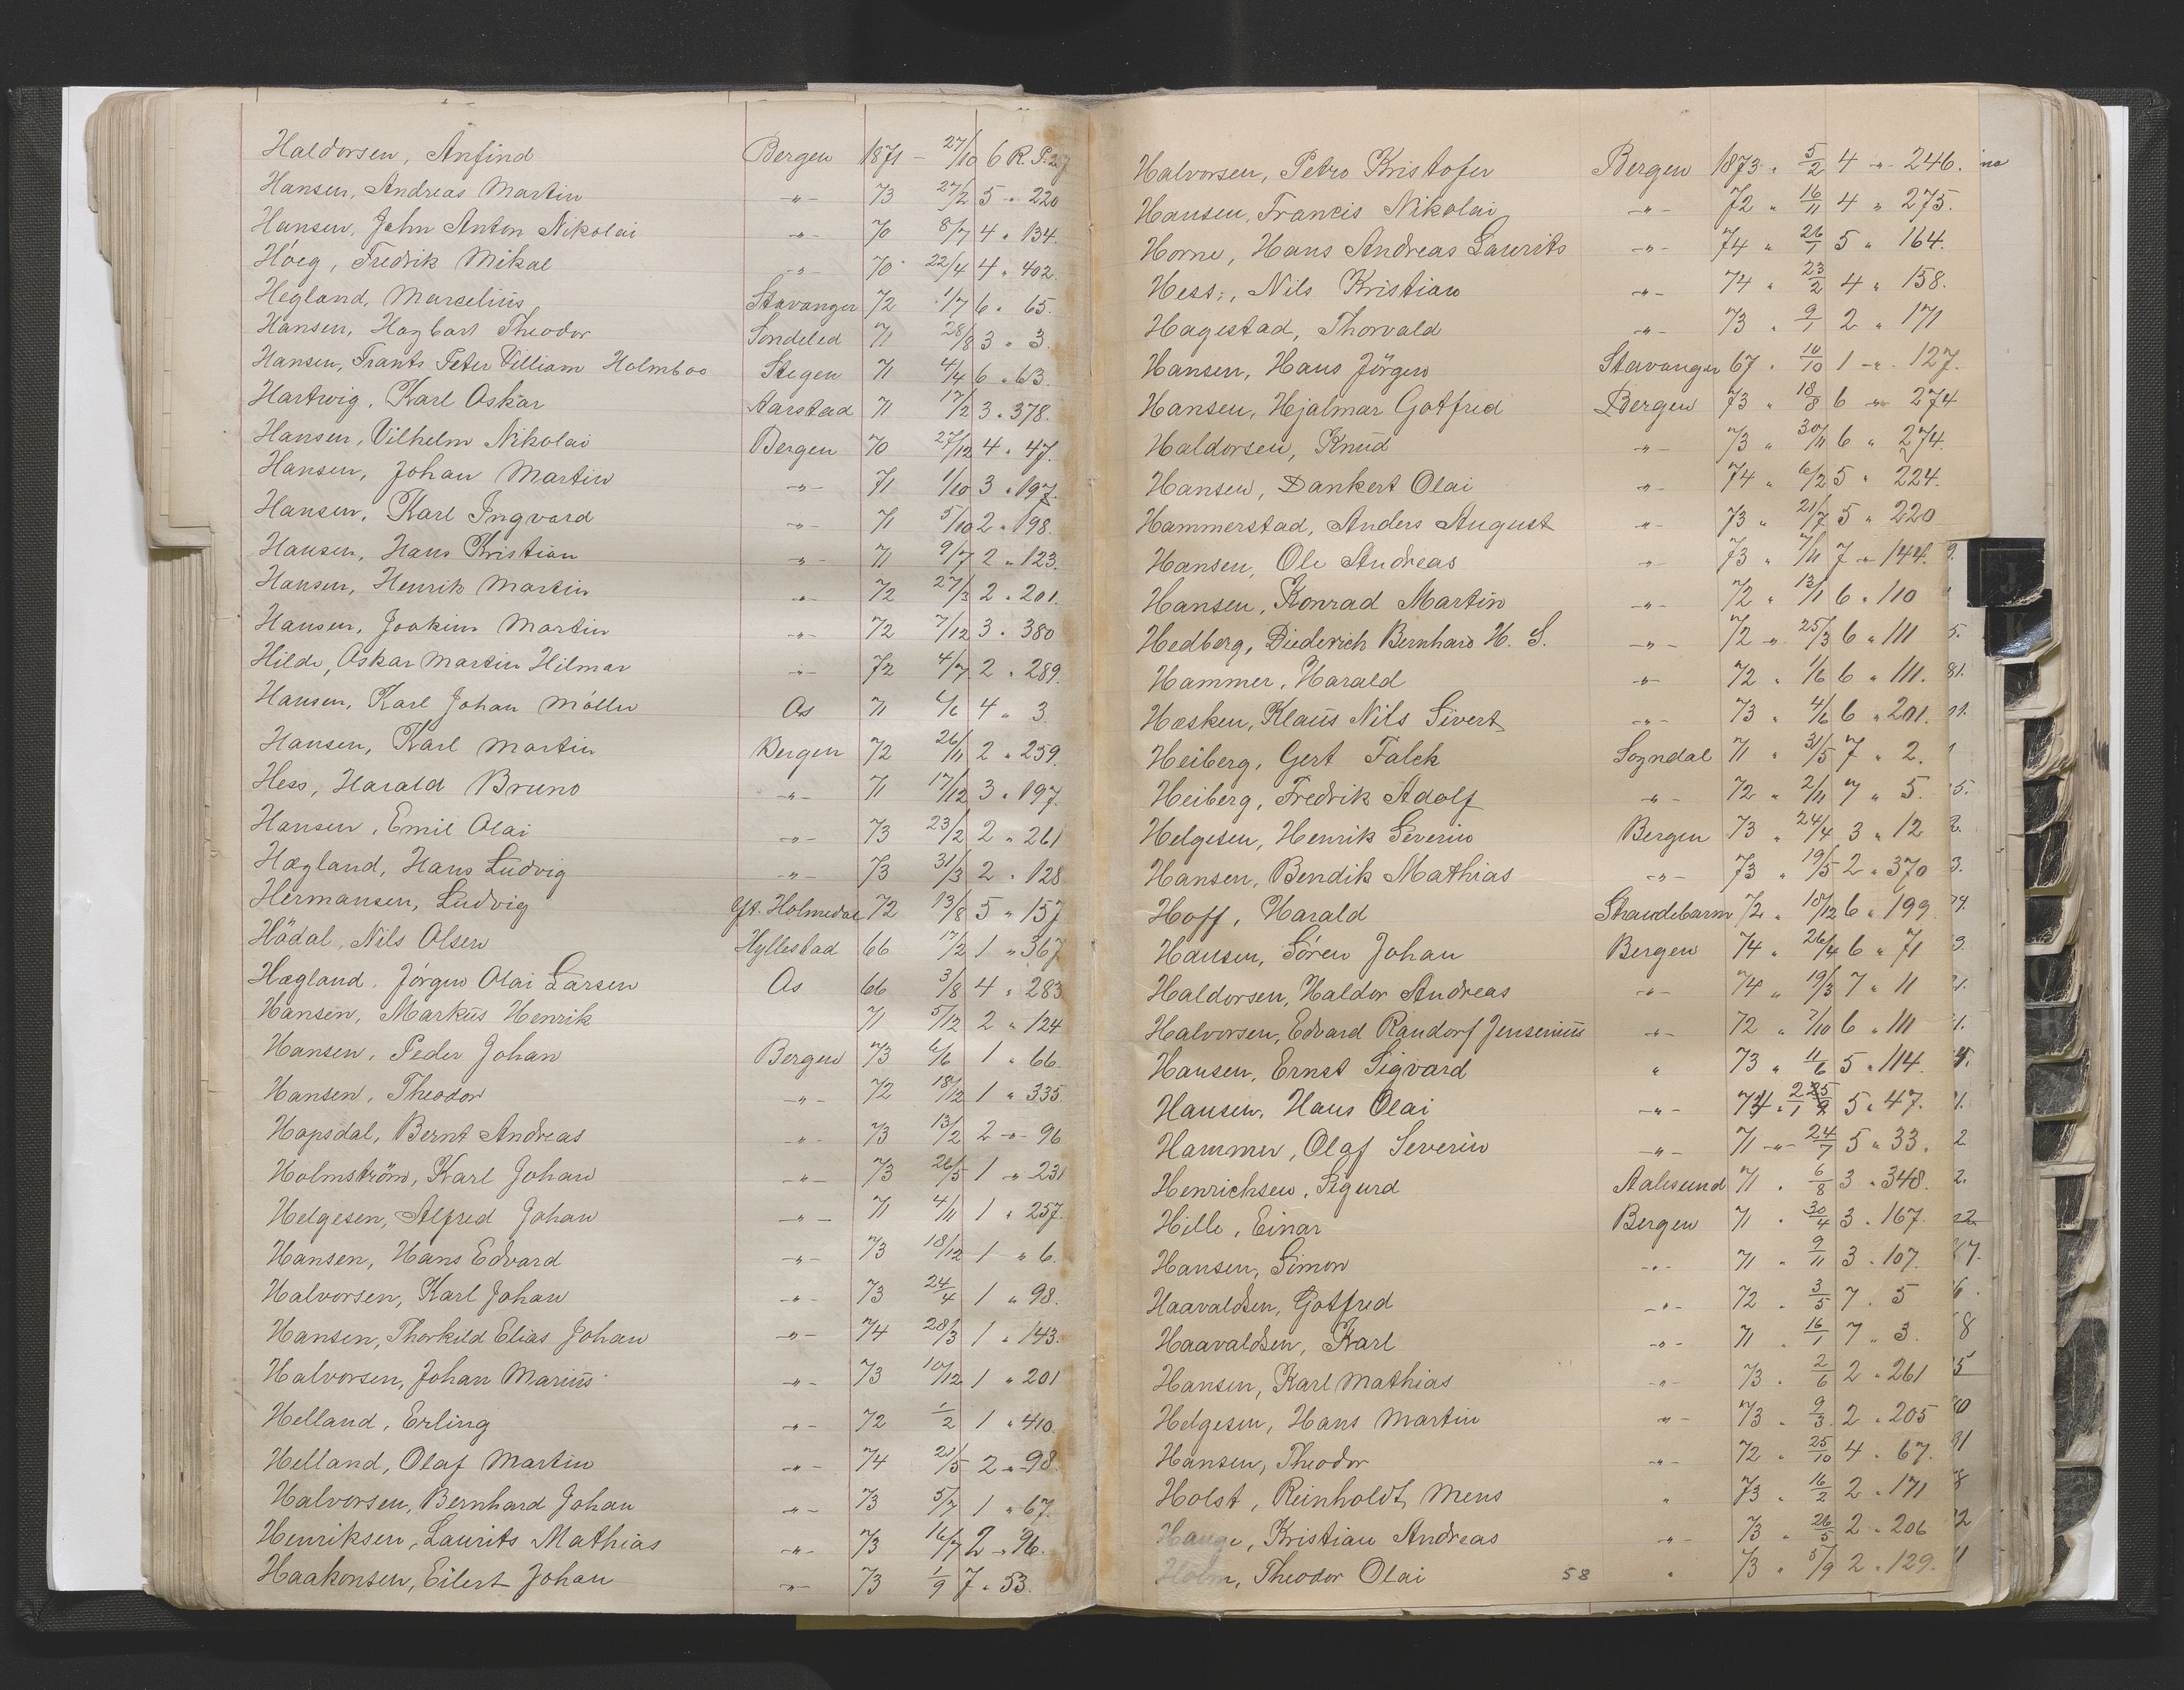 Haldorsen, Anfind Bergen 1871 - 27/10 6 R. P. 257
Hansen, Andreas Martin -"- 73 27/2 5 " 220
Hansen, John Anton Nikolai -"- 70 8/7 4 " 134.
Höeg, Fredrik Mikal -"- 70 22/4 4 " 402.
Hegland, Marcelius Stavanger 72 1/7 6 " 65.
Hansen, Hagbart Theodor Söndeled 71 28/8 3 " 3.
Hansen, Frants Peter Villiam Holmboo Stegen 71 4/4 6 " 63.
Hartwig, Karl Oskar Aarstad 71 17/2 3 " 378.
Hansen, Vilhelm Nikolai Bergen 70 27/12 4 " 47.
Hansen, Johan Martin -"- 71 1/10 3 " 197.
Hansen, Karl Ingvard -"- 71 5/10 2 " 198.
Hansen, Hans Kristian -"- 71 9/7 2 " 123.
Hansen, Henrik Martin -"- 72 27/3 2 " 201.
Hansen, Joakim Martin -"- 72 7/12 3 " 380
Hilde, Oskar Martin Hilmar -"- 72 4/7 2 " 289.
Hansen, Karl Johan Möller Os 71 6/6 4 " 3
Hansen, Karl Martin Bergen 72 26/11 2 " 259.
Hess, Harald Bruno -"- 71 17/12 3 " 197.
Hansen, Emil Olai -"- 73 23/2 2 " 261
Hægland, Hans Ludvig -"- 73 31/3 2 " 128
Hermansen, Ludvig Yt. Holmedal 72 13/8 5 " 157
Hödal, Nils Olsen Hyllestad 66 17/2 1 " 367
Hægland, Jörgen Olai Larsen Os 66 3/8 4 " 283
Hansen, Markus Henrik 71 5/12 2 " 124
Hansen, Peder Johan Bergen 73 6/6 1 " 66.
Hansen, Theodor -"- 72 18/12 1 " 335.
Hopsdal, Bernt Andreas -"- 73 13/2 2 -"- 96
Holmström, Karl Johan -"- 73 26/5 1 -"- 231
Helgesen, Alfred Johan -"- 71 4/11 1 " 257.
Hansen, Hans Edvard -"- 73 18/12 1 " 6.
Halvorsen, Karl Johan -"- 73 24/4 1 " 98.
Hansen, Thorkild Elias Johan -"- 74 28/3 1 " 143.
Halvorsen, Johan Marius -"- 73 10/12 1 " 201
Helland, Erling -"- 72 1/2 1 " 410.
Helland, Olaf Martin -"- 74 21/5 2 -"- 98.
Halvorsen, Bernhard Johan -"- 73 5/7 1 " 67.
Henriksen, Laurits Mathias -"- 73 16/7 2 -"- 96.
Haakonsen, Eilert Johan -"- 73 1/9 7 " 53.
Halvorsen, Petro Kristofer Bergen 1873 " 5/2 4 -"- 246.
Hansen, Francis Nikolai -"- 72 " 16/11 4 " 275.
Horne, Hans Andreas Laurits -"- 74 " 26/1 5 " 164.
Hess, Nils Kristian -"- 74 " 23/2 4 " 158.
Hagestad, Thorvald -"- 73 " 9/1 2 " 171
Hansen, Hans Jörgen Stavanger 67 " 10/10 1 -"- 127.
Hansen, Hjalmar Gotfred Bergen 73 " 18/8 6 -"- 274
Haldorsen, Knud -"- 73 " 30/11 6 " 274.
Hansen, Dankert Olai -"- 74 " 6/2 5 " 224.
Hammerstad, Anders August -"- 73 " 21/7 5 " 220
Hansen, Ole Andreas -"- 73 " 7/11 7 -"- 144.
Hansen, Konrad Martin -"- 72 " 13/1 6 " 110
Hedberg, Diederich Bernhard H. S. -"- 72 -"- 25/3 6 " 111
Hammer, Harald -"- 72 " 1/6 6 " 111.
Hæsken, Klaus Nils Sivert -"- 73 " 4/6 6 " 201.
Heiberg, Gert Falch Sogndal 71 " 31/5 7 " 2.
Heiberg, Fredrik Adolf -"- 72 " 2/11 7 " 5.
Helgesen, Henrik Severin Bergen 73 " 24/4 3 " 12
Hansen, Bendik Mathias -"- 73 " 19/5 2 " 370
Hoff, Harald Strandebarm 72 " 18/12 6 " 199
Hansen, Sören Johan Bergen 74 " 26/4 6 " 71
Haldorsen, Haldor Andreas -"- 74 " 19/3 7 " 11
Halvorsen, Edvard Randorf Jensenius -"- 72 " 7/10 6 " 111
Hansen, Ernst Sigvard " 73 " 11/6 5 " 114.
Hansen, Hans Olai -"- 74 " 5 " 47.
Hammer, Olaf Severin -"- 71 -"- 24/7 5 " 33.
Henrichsen, Sigurd Aalesund 71 " 6/8 3 " 348.
Hille, Einar Bergen 71 " 30/4 3 " 167.
Hansen, Simon -"- 71 " 9/11 3 " 107.
Haavaldsen, Gotfred -"- 72 " 3/5 7 " 5
Haavaldsen, Karl -"- 71 " 16/1 7 " 3.
Hansen, Karl Mathias -"- 73 " 2/6 2 " 261
Helgesen, Hans Martin -"- 73 " 9/3 2 " 205
Hansen, Theodor -"- 72 " 25/10 4 " 67.
Holst, Reinholdt Mens " 73 " 16/2 2 " 171
Hauge, Kristian Andreas -"- 73 " 26/5 2 " 206
Holm, Theodor Olai 58 " 73 " 5/9 2 " 129.
J
K